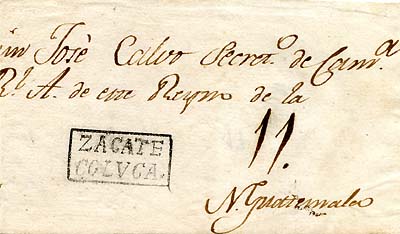 Josè Calvo Secret.º de Cam.ª
R.l A. de este Reyno de la
11.
ZACATE
COLUCA.
N. Guatemala